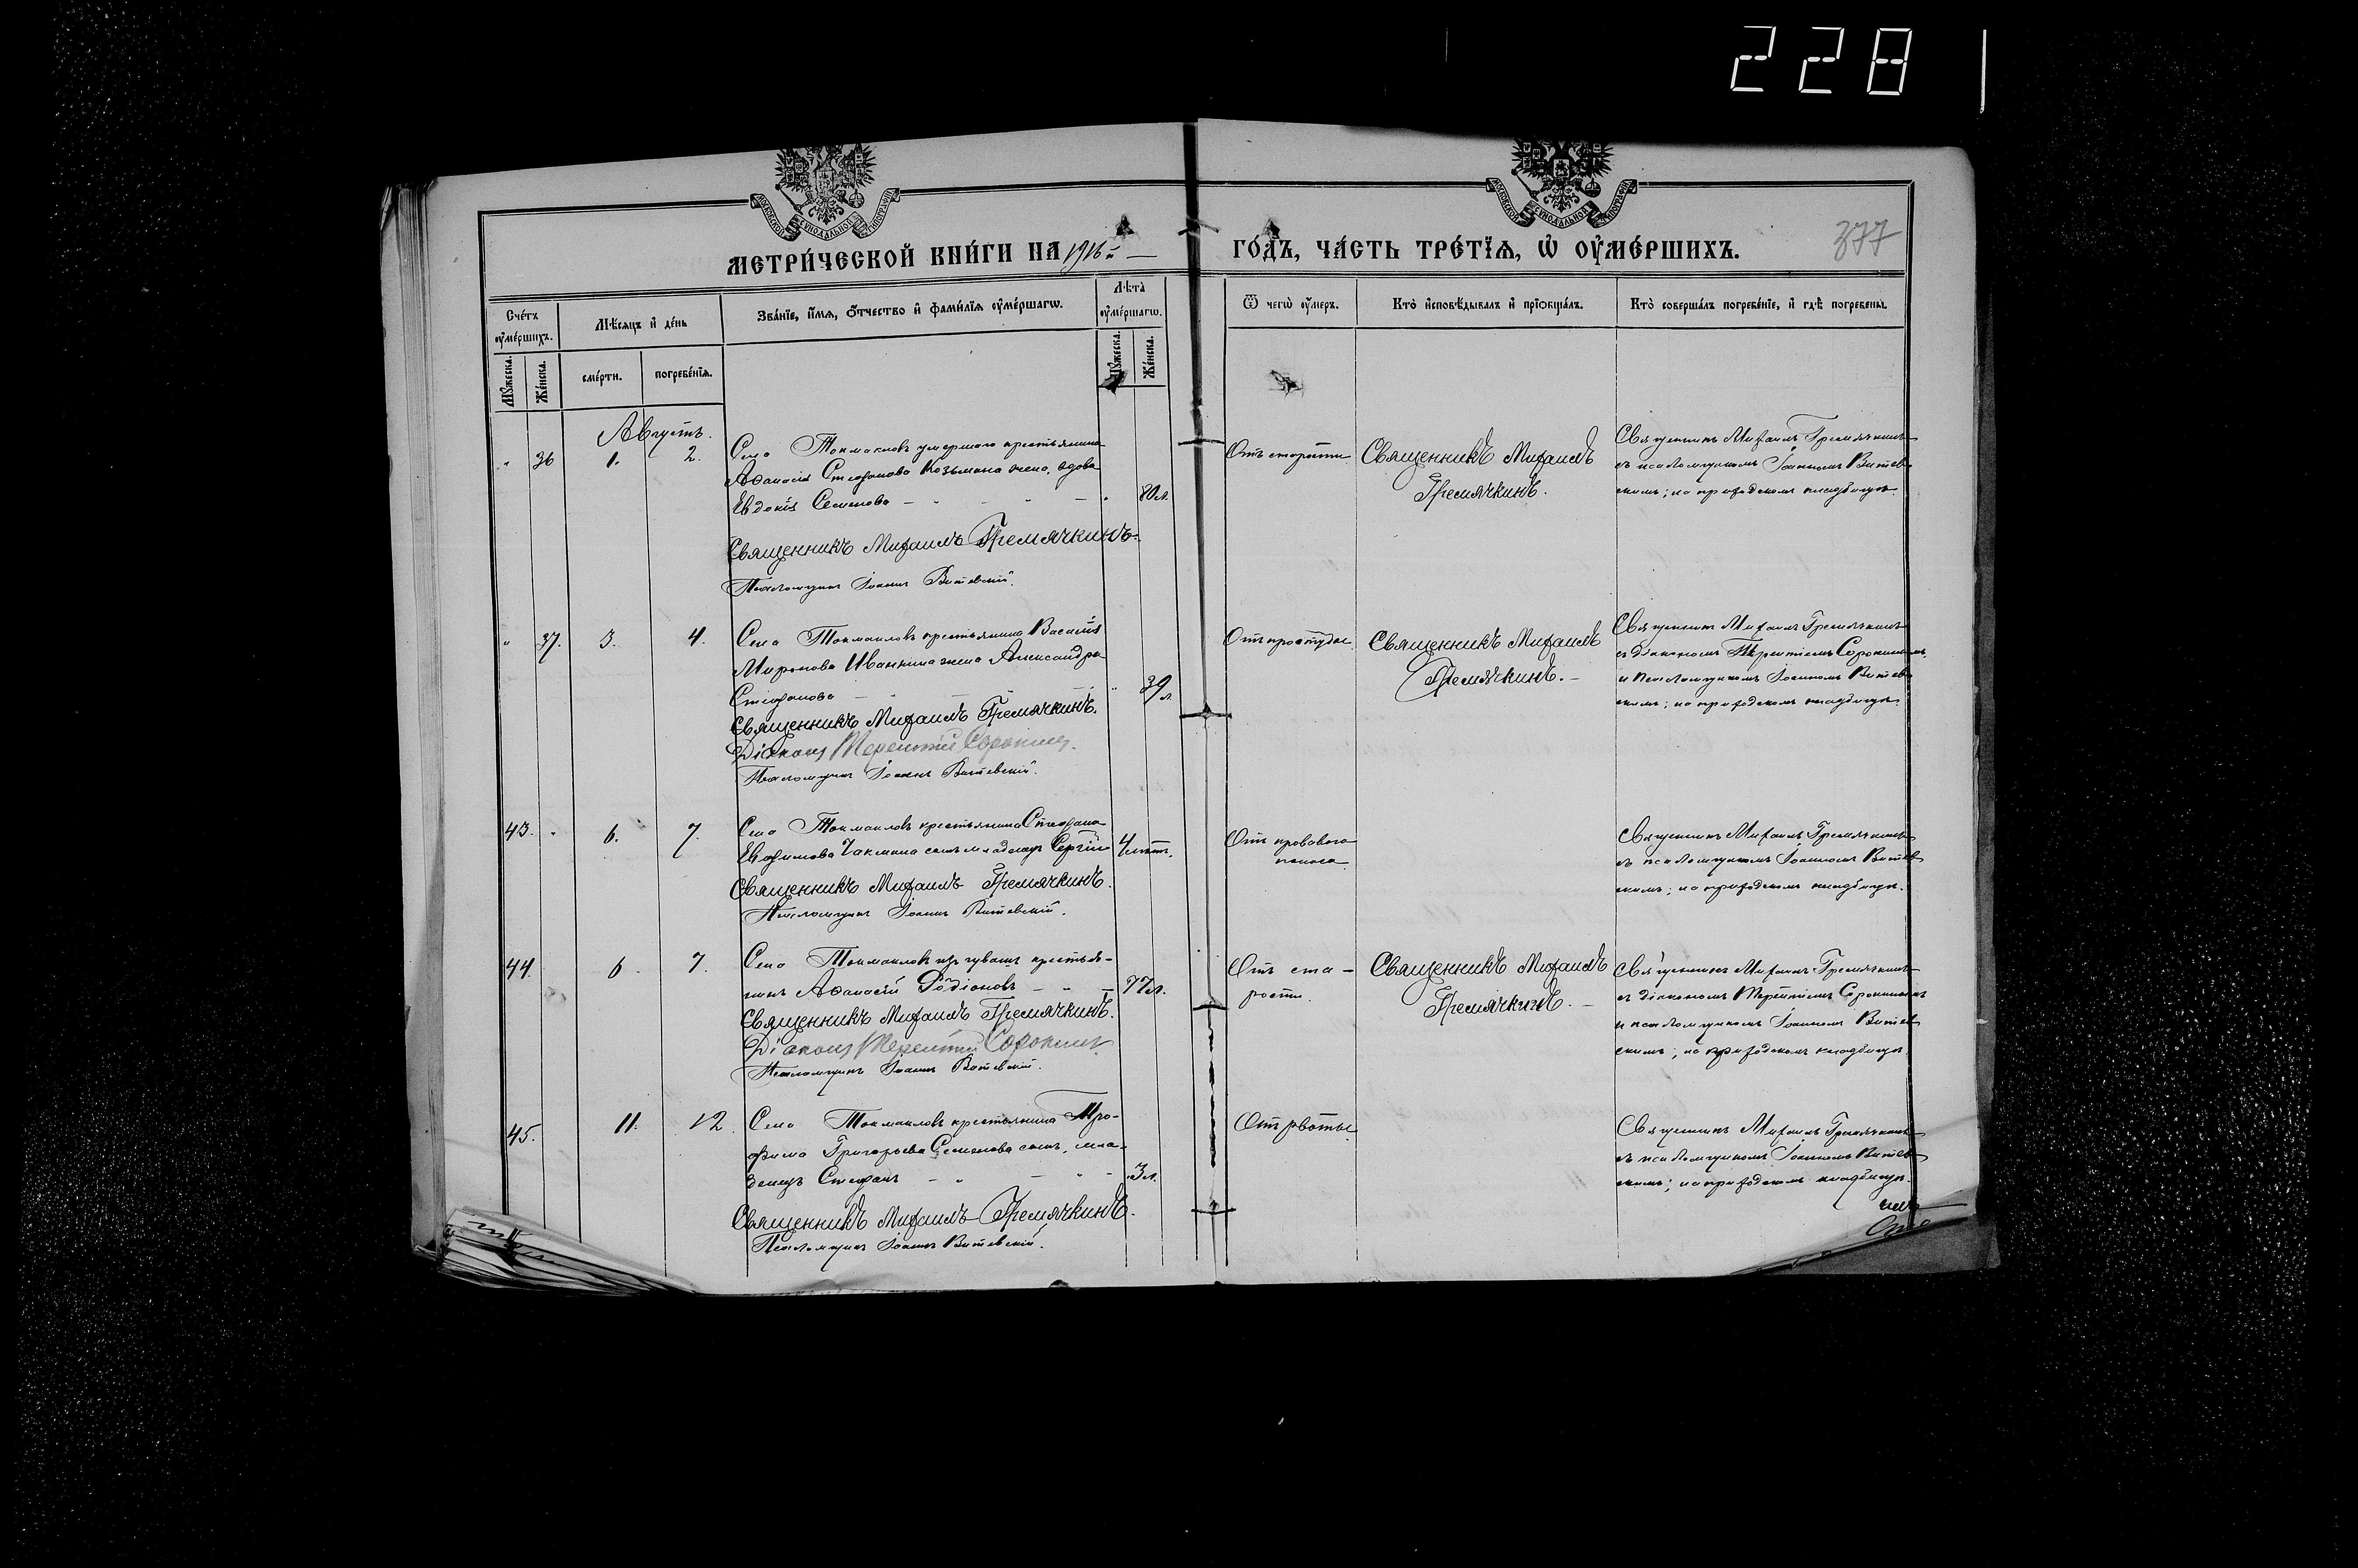 2281
МОСКОВСКОЙ СѴНОДАЛЬНОЙ ТИПОГРАФІИ
МОСКОВСКОЙ СѴНОДАЛЬНОЙ ТИПОГРАФІИ
377
МЕТРИ́ЧЕСКОЙ КНИ́ГИ НА 1916 й —
ГО́ДЪ, ЧА́СТЬ ТРЕ́ТЇѦ, Ѡ҆ ОУ҆МЕ́РШИХЪ.
Сче́тъ оу҆ме́ршихъ.
Мѣ́сѧцъ и҆ де́нь
Зва́нїе, и҆́мѧ, ѻ҆́тчество и҆ фами́лїѧ оу҆ме́ршагѡ.
Лѣ̀та оу҆ме́ршагѡ.
Ѿ чегѡ̀ оу҆́меръ.
Кто̀ и҆сповѣ́дывалъ и҆ прїѻбща́лъ.
Кто̀ соверша́лъ погребе́нїе, и҆ гдѣ̀ погребены̀.
Мꙋ́жеска.
Же́нска.
сме́рти.
погребе́нїѧ.
Мꙋ́жеска.
Же́нска.
Августъ.
" 36 1. 2.
Села Токмаклов умершаго крестьянина
Аѳанасія Стефанова Козьмина жена, вдова
Евдокія Семенова — " — — " 80 л.
Священникъ Михаилъ Гремячкинъ.
Псаломщикъ Іоаннъ Витевскій.
Отъ старости
Священникъ Михаилъ
Гремячкинъ.
Священникъ Михаилъ Гремячкинъ
съ псаломщикомъ Іоанномъ Витев
скимъ; на приходскомъ кладбищѣ.
" 37. 3. 4.
Села Токмаклов крестьянина Василія
Миронова Иванкина жена Александра
Стефанова — " — " — " 39 л.
Священникъ Михаилъ Гремячкинъ.
Діаконъ Терентій Сорокинъ.
Псаломщикъ Іоаннъ Витевскій.
Отъ простуды
Священникъ Михаилъ
Гремячкинъ. —
Священникъ Михаилъ Гремячкинъ
съ діакономъ Терентіемъ Сорокинымъ
и псаломщикомъ Іоанномъ Витев
скимъ; на приходскомъ кладбищѣ.
43. " 6. 7.
Села Токмаклов крестьянина Стефана
Евфимова Чакмина сынъ младенецъ Сергій 4 лѣтъ.
Священникъ Михаилъ Гремячкинъ.
Псаломщикъ Іоаннъ Витевскій.
Отъ кроваваго
поноса
Священникъ Михаилъ Гремячкинъ
съ псаломщикомъ Іоанномъ Витев
скимъ; на приходскомъ кладбищѣ.
44. 6. 7.
Села Токмаклов изъ чувашъ крестья-
нинъ Аѳанасій Родіоновъ — " — 77 л.
Священникъ Михаилъ Гремячкинъ.
Діаконъ Терентій Сорокинъ
Псаломщикъ Іоаннъ Витевскій.
Отъ ста-
рости.
Священникъ Михаилъ
Гремячкинъ. —
Священникъ Михаилъ Гремячкинъ
съ діакономъ Терентіемъ Сорокинымъ
и псаломщикомъ Іоанномъ Витев
скимъ; на приходскомъ кладбищѣ.
45. 11. 12.
Села Токмаклов крестьянина Тро-
фима Григорьева Семенова сынъ, мла-
денецъ Стефанъ — " — " 3 л.
Священникъ Михаилъ Гремячкинъ.
Псаломщикъ Іоаннъ Витевскій.
Отъ рвоты
Священникъ Михаилъ Гремячкинъ
съ псаломщикомъ Іоанномъ Витев
скимъ; на приходскомъ кладбищѣ.